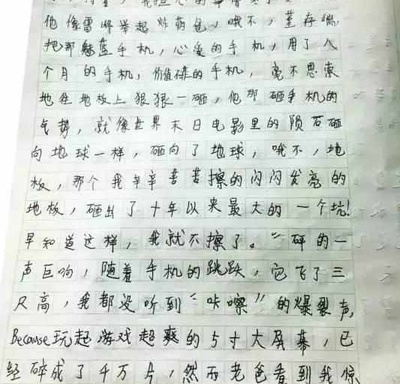 他像雷峰举起炸药包，哦不，董存瑞，
把那魅蓝手机，心爱的手机，用了八
个月的手机，价值连的手机，毫不思索
地在地板上狠狠一砸，他那砸手机的
气势，就像世界末日电影里的陨石砸
向地球一样，砸向了地球，哦不，地
板，那个我辛辛苦苦擦的闪闪发亮的
地板，砸出了十年以来最大的一个坑！
早知道这样，我就不擦了。“砰的一
声巨响，随着手机的跳跃，它飞了三
尺高，我都没听到“咔嚓”的爆裂声，
Because玩起游戏超爽的5寸大屏幕，已
经碎成了千万片，然而老爸看到我惊